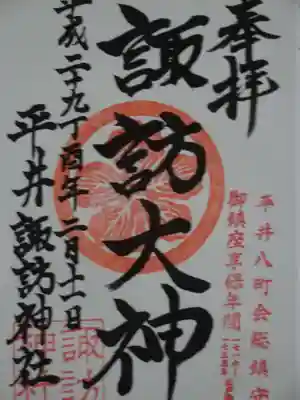 奉拝
平井八町会総鎮守
御鎮座享保年間
諏訪大神
平成二十九丁酉年二月十一日
平井諏訪神社